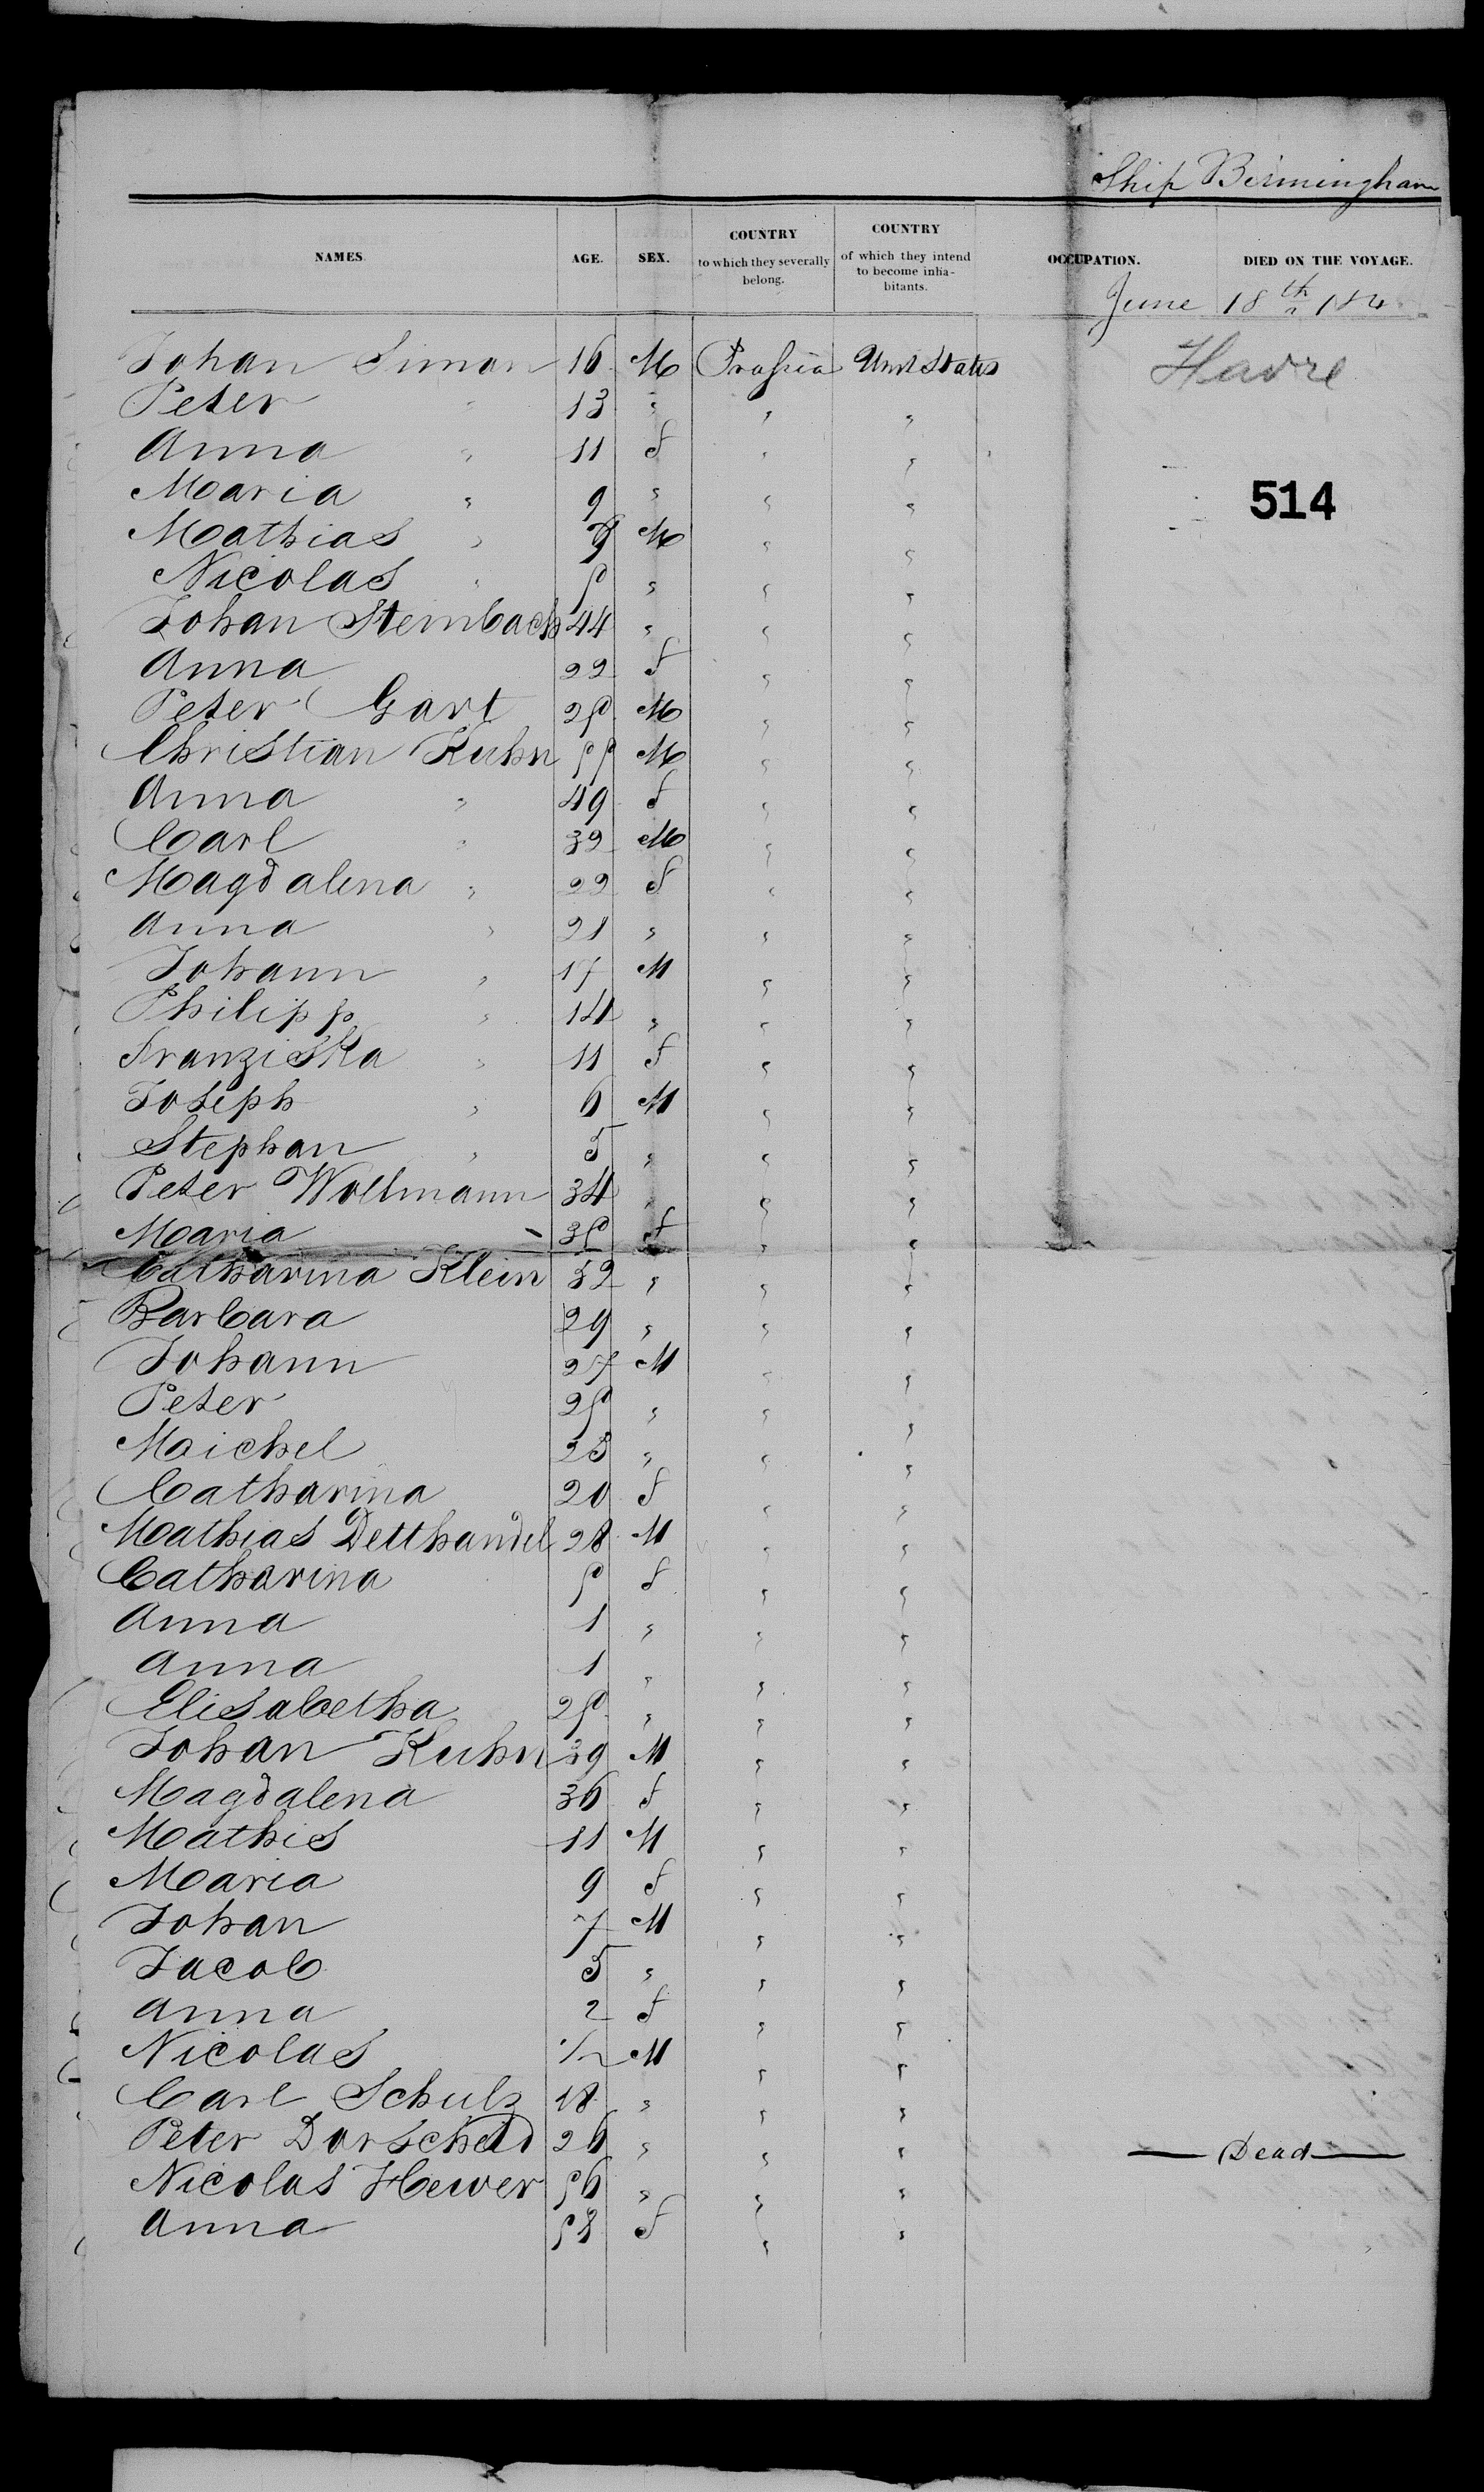 Ship Birmingham
NAMES. AGE. SEX. COUNTRY to which they severally belong. COUNTRY of which they intend to become inhabitants. OCCUPATION. DIED ON THE VOYAGE.
June 18th 184
Johan Simon 16 M Prussia Unit States Havre
Peter " 13 " " "
Anna " 11 f " "
Maria " 9 " " "
514
Mathias " M " "
Nicolas " 5 " " "
Johan Steinbach 44 " " "
Anna 22 f " "
Peter Gart 25 M " "
Christian Kuhn 55 M " "
Anna " 49 f " "
Carl " 32 M " "
Magdalena " 22 f " "
Anna " 21 " " "
Johann " 17 M " "
Philipp " 14 " " "
Franziska " 11 f " "
Joseph " 6 M " "
Stephan " 5 " " "
Peter Wollmann 34 " " "
Maria 35 f " "
Catharina Klein 52 " " "
Barbara 29 " " "
Johann 27 M " "
Peter 25 " " "
Michel 23 " " "
Catharina 20 f " "
Mathias Detthandel 28 M " "
Catharina 5 f " "
Anna 1 " " "
Anna 1 " " "
Elisabetha 25 " " "
Johan Kuhn 39 M " "
Magdalena 36 f " "
Mathis 11 M " "
Maria 9 f " "
Johan 7 M " "
Jacob 5 " " "
Anna 2 f " "
Nicolas 1/2 M " "
Carl Schulz 18 " " "
Peter Dorscheid 26 " " " Dead
Nicolas Hewer 56 " " "
Anna 58 f " "